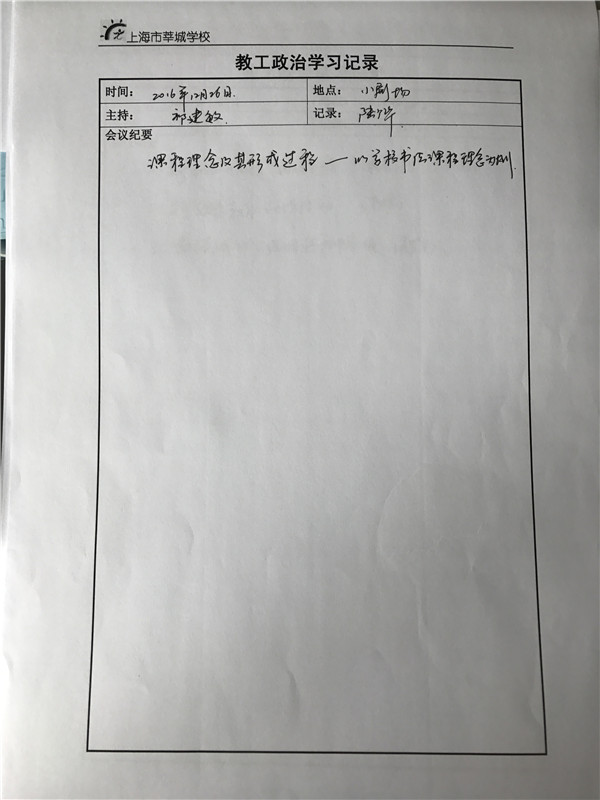 上海市莘城学校
教工政治学习记录
时间： 2016年12月26日. 地点： 小剧场
主持： 祁建敏 记录： 陆烨
会议纪要
课程理念及其形成过程 — 以学校书法课程理念为例.